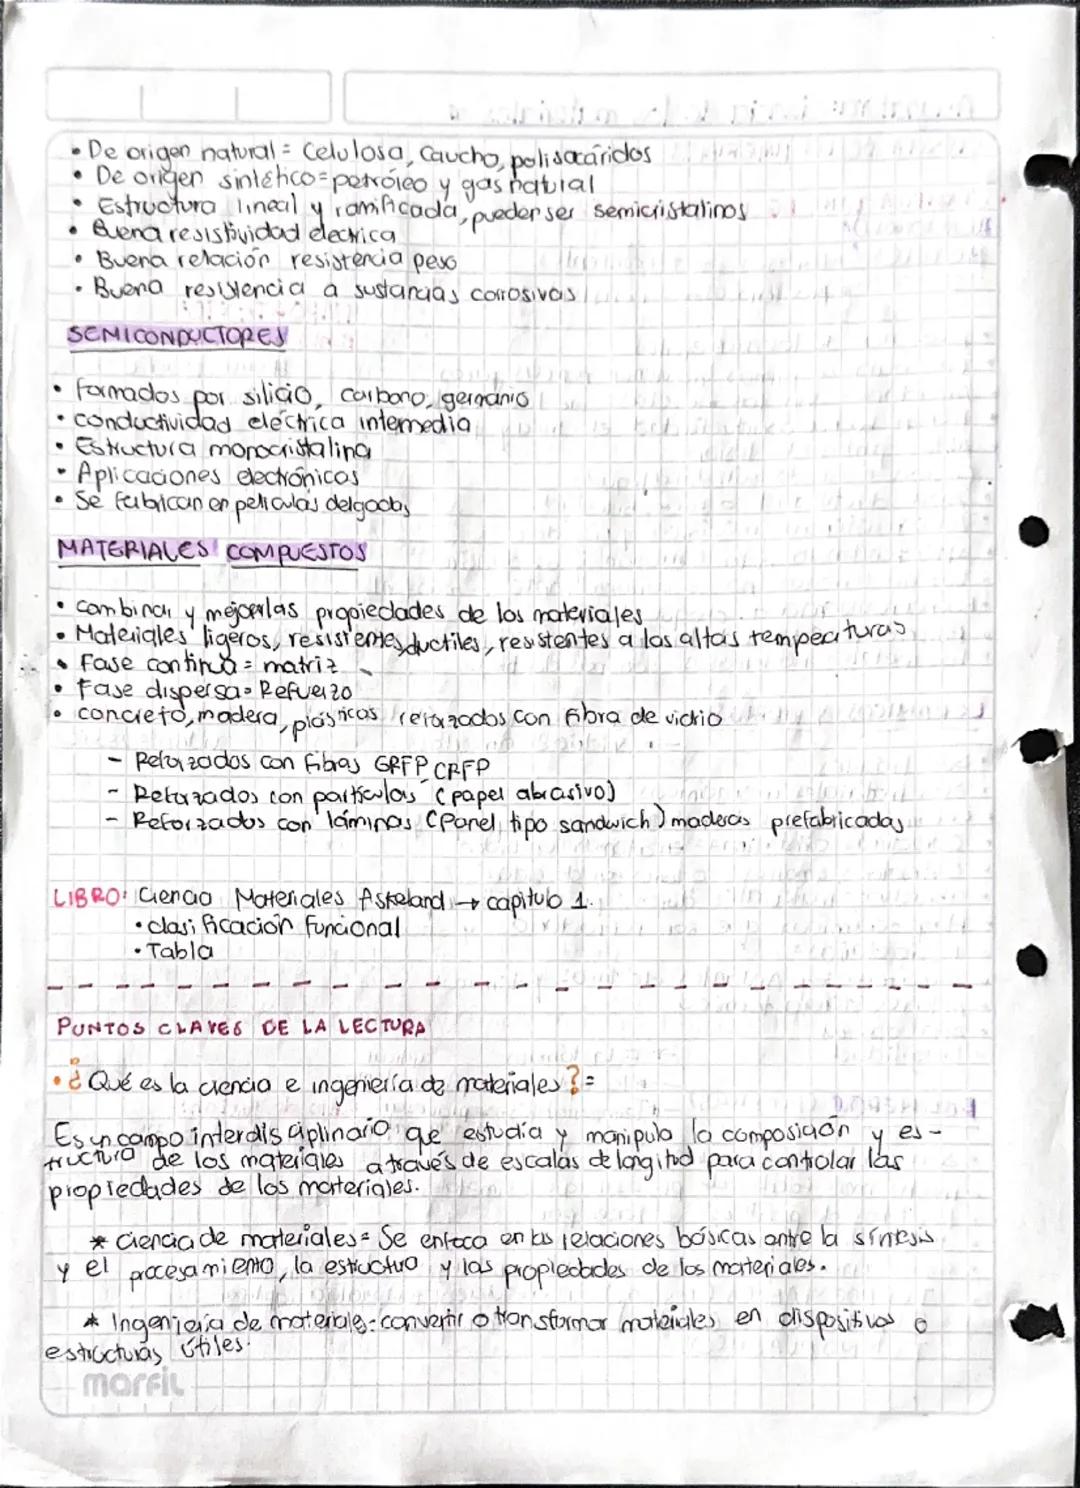 • De origen natural = Celulosa, Caucho, polisacáridos
• De origen sintético = petróleo y gas natural
• Estructura lineal y ramificada, pueden ser semicristalinos
• Buena resistividad electrica
• Buena relación resistencia peso
• Buena resistencia a sustancias corrosivas
SEMICONDUCTORES
• Formados por silicio, carbono, germanio
• conductividad eléctrica intemedia
• Estructura monocristalina
• Aplicaciones electrónicas
• Se fabrican en peliculas delgadas
MATERIALES COMPUESTOS
• combinar y mejorar las propiedades de los materiales
• Materiales ligeros, resistentes, ductiles, resistentes a las altas temperaturas
• Fase continua = matriz
• Fase dispersa = Refuerzo
• concreto, madera, plásticos reforzados con fibra de vidrio
- Reforzados con fibras GRFP CRFP
- Reforzados con particulas (papel abrasivo)
- Reforzados con láminas (Panel tipo sandwich) maderas prefabricadas
LIBRO: Ciencia Materiales Askeland → capitulo 1.
• clasificación Funcional
• Tabla
PUNTOS CLAVES DE LA LECTURA
• ¿Qué es la ciencia e ingeniería de materiales? =
Es un campo interdisciplinario que estudia y manipula la composición y es-
tructura de los materiales a través de escalas de longitud para controlar las
propiedades de los materiales.
* ciencia de materiales = Se enfoca en las relaciones básicas entre la síntesis
y el procesamiento, la estructura y las propiedades de los materiales.
* Ingeniería de materiales = convertir o transformar materiales en dispositivos o
estructuras útiles.
marfil